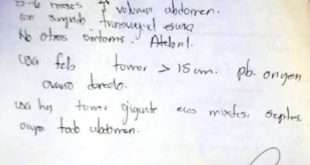 5-6 meses ↑ volumen abdomen.
con sangrado transvaginal escasa
No otros sintomas. Atelnl.
usa feb tumor > 15cm. pb. origen
ovario derecho.
usa hoy tumor gigante ecos mixtos, septos.
ocupa todo abdomen.